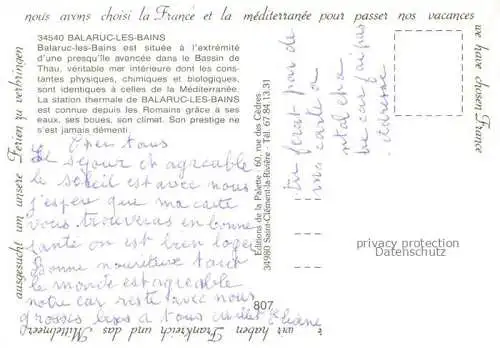 nous avons choisi la France et la méditerranée pour passer nos vacances
we have chosen France
34540 BALARUC-LES-BAINS
Balaruc-les-Bains est située à l'extrémité
d'une presqu'île avancée dans le Bassin de
Thau, véritable mer intérieure dont les con-
stantes physiques, chimiques et biologiques,
sont identiques à celles de la Méditerranée.
La station thermale de BALARUC-LES-BAINS
est connue depuis les Romains grâce à ses
eaux, ses boues, son climat. Son prestige ne
s'est jamais démenti.
tous
séjour est agréable
le soleil est avec nous
j'espère que ma carte
vous trouveras en bonne
santé on est bien loger
Bonne nouriture tout
le monde est agréable
notre car reste avec nous
grosses bises a tous
Eliane
Editions de la Palette - 60, rue des Cèdres
34980 Saint-Clément-la-Rivière - Tél. 67.84.13.31
807
tu feras part de
ma carte a
car j'ai pas
adresse
privacy protection
Datenschutz
wir haben Frankreich und das Mittelmeer
ausgesucht um unsere Ferien zu verbringen